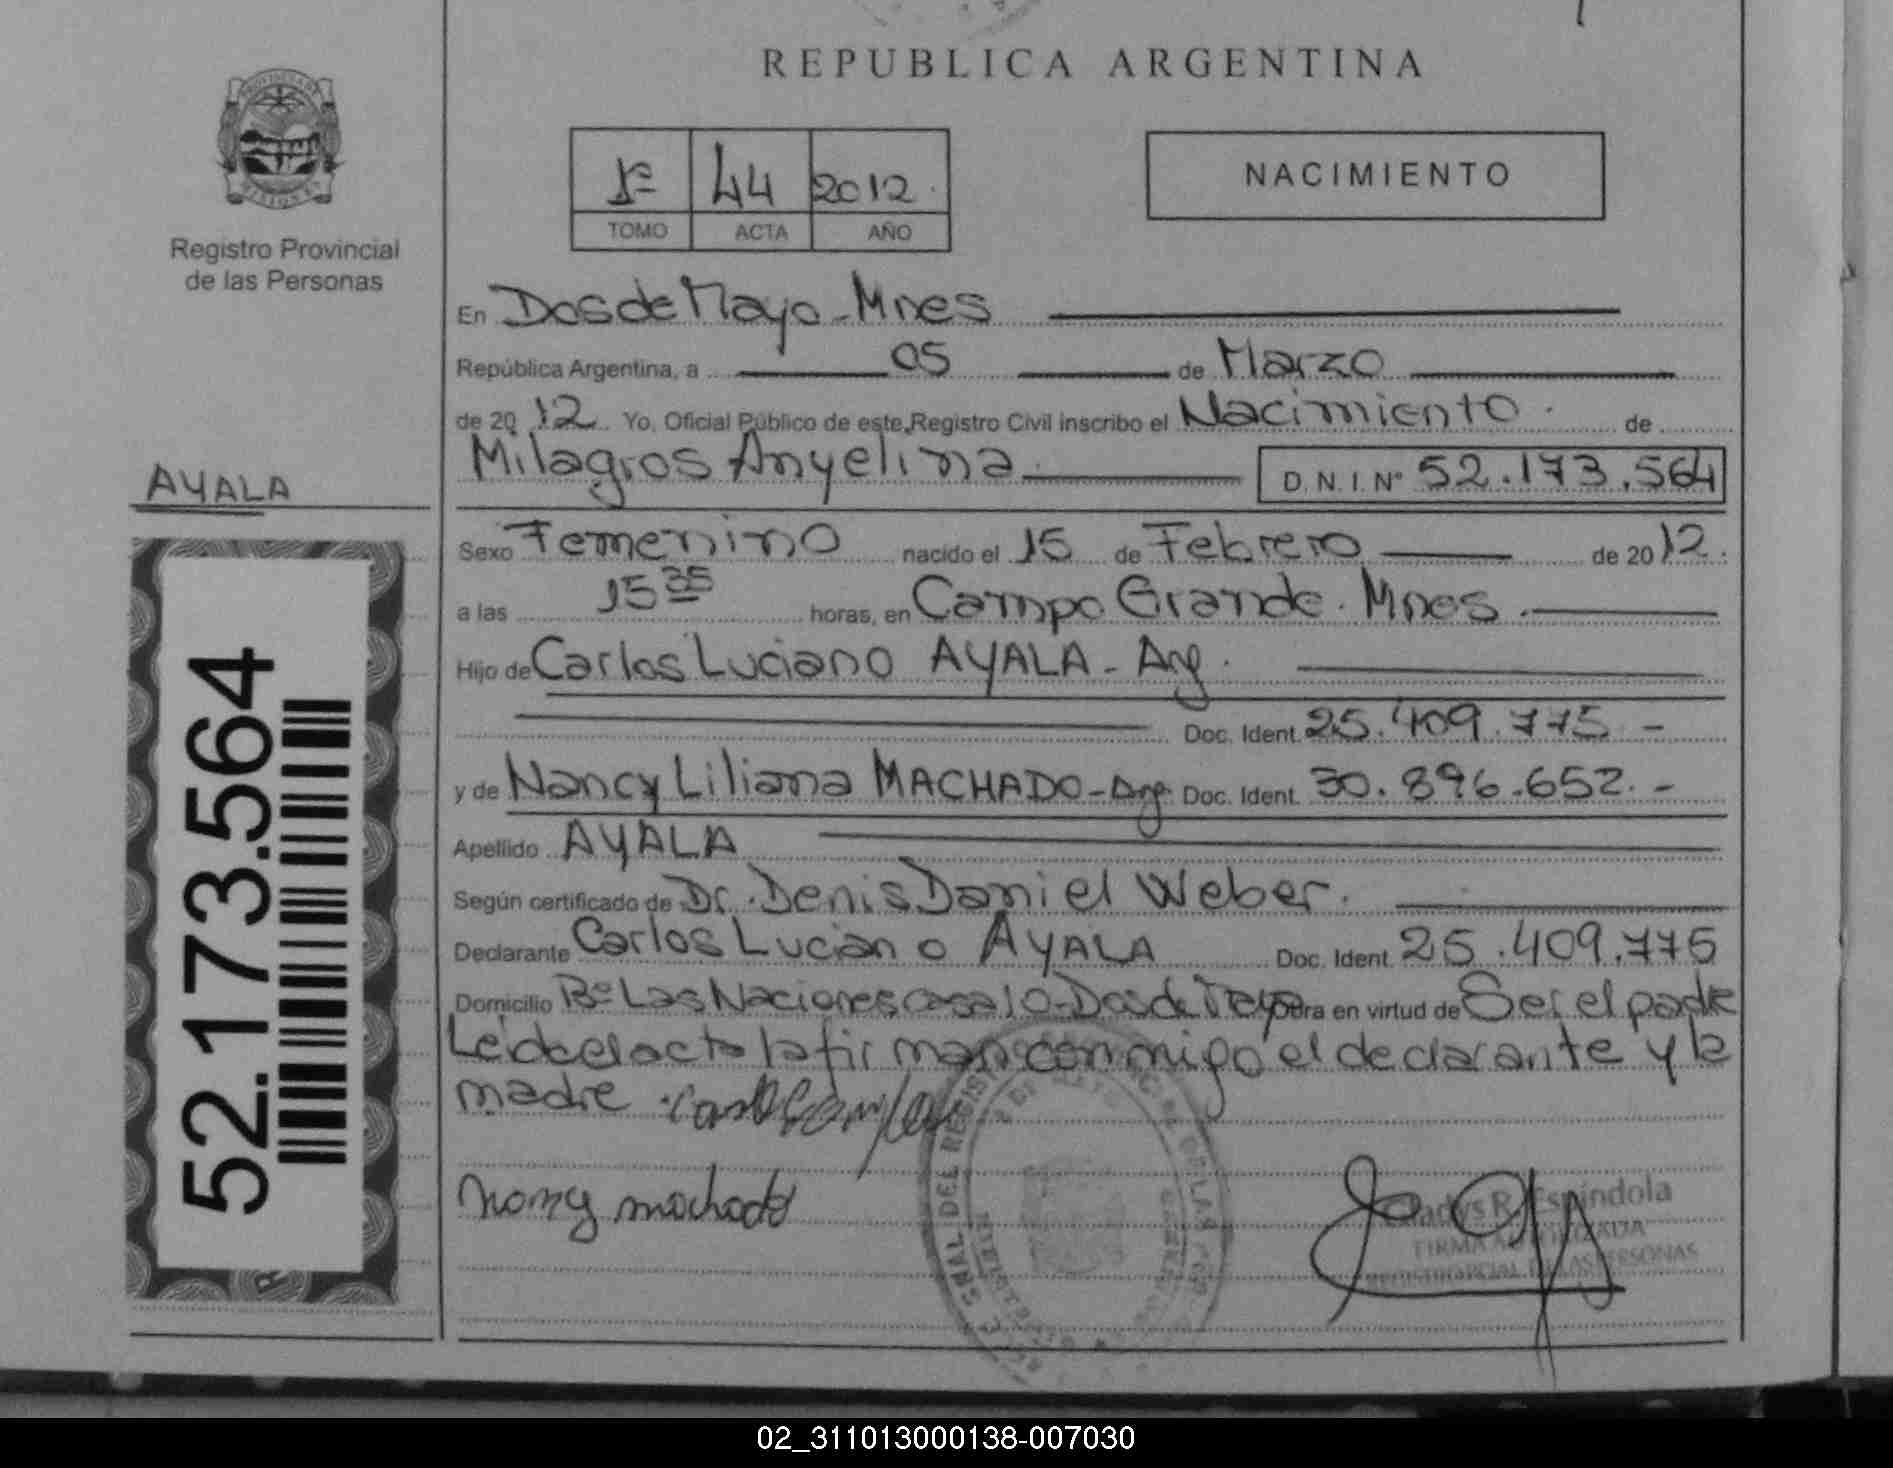 REPUBLICA ARGENTINA
PROVINCIA DE
MISIONES
Registro Provincial
de las Personas
1º 44 2012
TOMO ACTA AÑO
NACIMIENTO
En Dos de Mayo - Mnes
República Argentina, a 05 de Marzo
de 2012 Yo, Oficial Público de este Registro Civil inscribo el Nacimiento de
Milagros Anyelina D.N.I. Nº 52.173.564
AYALA
Sexo Femenino nacido el 15 de Febrero de 2012.
a las 15 35 horas, en Campo Grande. Mnes.
Hijo de Carlos Luciano AYALA - Arg.
Doc. Ident. 25.409.775. -
y de Nancy Liliana MACHADO - Arg. Doc. Ident. 30.896.652. -
Apellido AYALA
Según certificado de Dr. Denis Daniel Weber.
Declarante Carlos Luciano AYALA Doc. Ident. 25.409.775
Domicilio Bº Las Naciones casa 10 - Dos de Mayo Obra en virtud de Ser el padre
Leída el acta la firman conmigo el declarante y la
madre.
Nancy machado
Gladys R. Espíndola
FIRMA AUTORIZADA
REGISTRO PCIAL. DE LAS PERSONAS
52.173.564
02_311013000138-007030